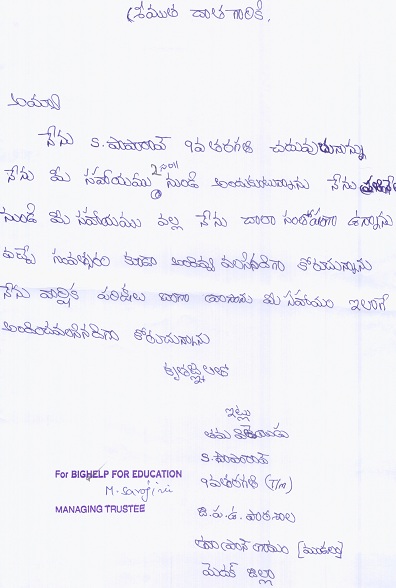 శ్రీయుత దాత గారికి,
అయ్యా
నేను S. పాపారావ్ 9వతరగతి చదువుతున్నాను
నేను మీ సహాయము 2011 నుండి అందుకుంటున్నాను నేను
నుండి మీ సహాయము వల్ల నేను చాలా సంతోషంగా ఉన్నాను
వచ్చే సంవత్సరం కూడా అందివ్వ వలసిందిగా కోరుచున్నాను
నేను వార్షిక పరీక్షలు బాగా రాసాను మీ సహాయం ఇలాగే
అందించవలసినదిగా కోరుచున్నాను
కృతజ్ఞతలతో
ఇట్లు
తమ విధేయుడు
S. పాపారావ్
9వతరగతి (T/m)
జి.ప.ఉ. పాఠశాల
గ్రామం [మండలం]
మెదక్ జిల్లా
For BIGHELP FOR EDUCATION
M. Sarojini
MANAGING TRUSTEE